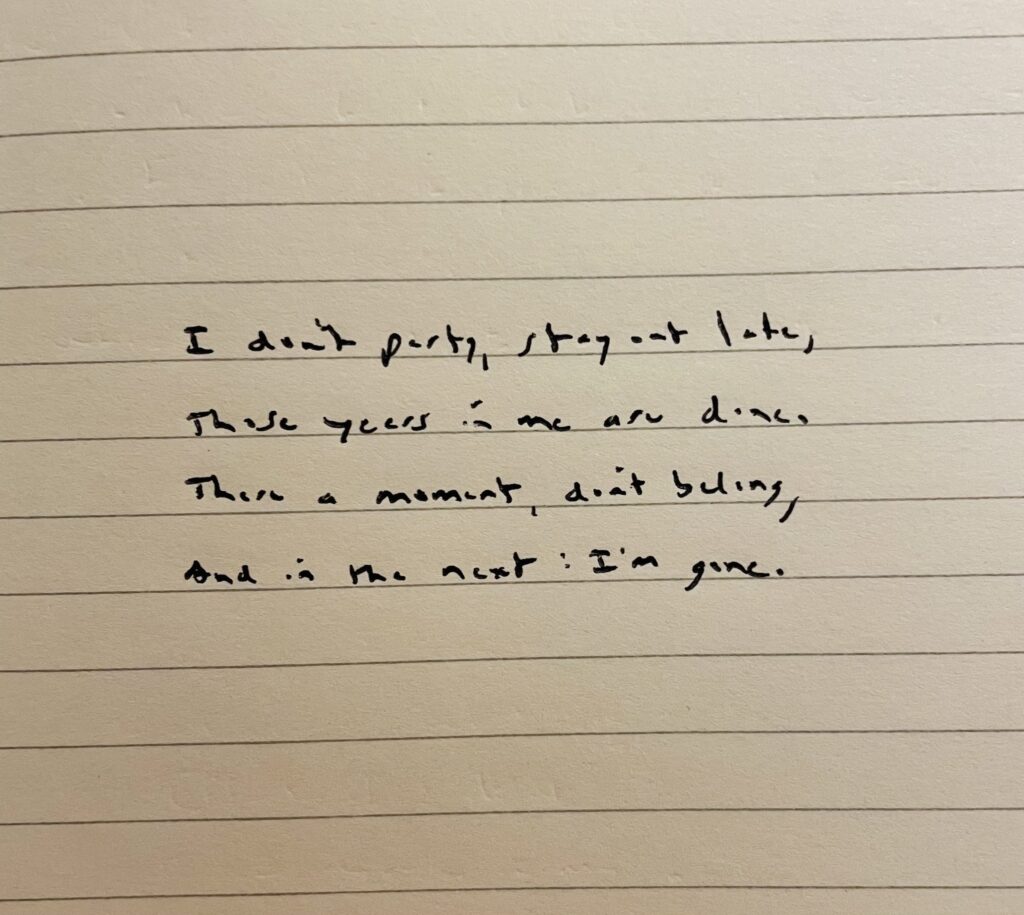 I don't party, stay out late,
Those years in me are done.
There a moment, don't belong,
And in the next : I'm gone.